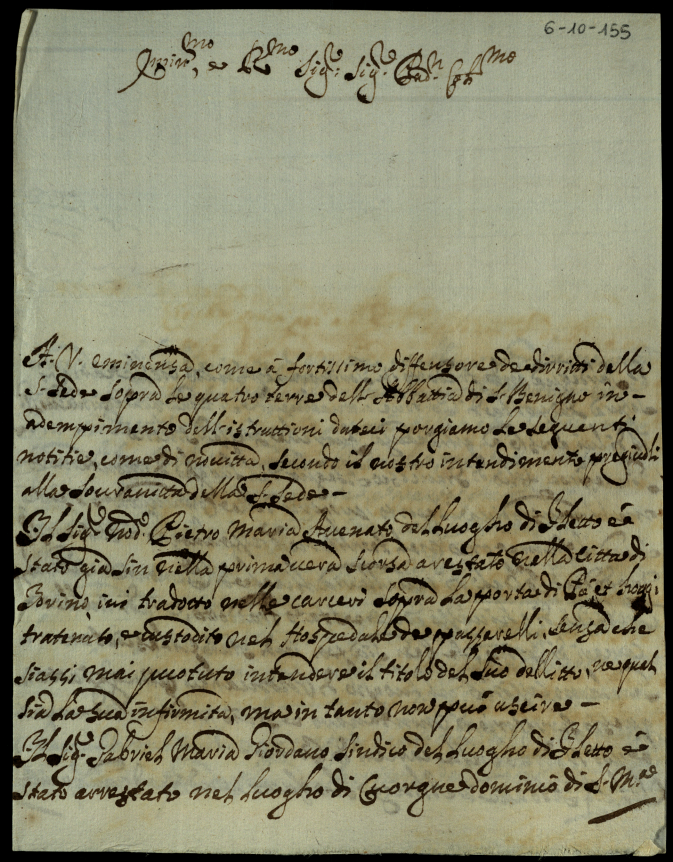 6-10-155
Emin.mo, e R.mo Sig.e Sig.e Pad.n Col.mo
A. V. eminenza, come à fortissimo diffensore de dirritti della
S. Sede sopra le quatro terre dell'Abbattia di S. Benigno in-
adempimento dell'istruttioni dateci porgiamo le sequenti
notitie, come di novittà, secondo il nostro intendimento pregiudi.li
alla Souranittà della S. Sede-
Il Sig.e Nod.e Pietro Maria Auenato del Luogho di Feletto é
stato già sin nella primavera scorsa arrestato nella Città di
Torino, ivi tradotto nelle carceri sopra la porta di Pò, et hoggi
tratenuto, e custodito nel Hospedale de pazzarelli, senza che
siassi mai puotuto intendere il titolo del suo dellitto, ne qual
sia la sua infirmità, ma in tanto non può uscire-
Il Sig.e Gabriel Maria Giordano Sindico del Luogho di Feletto é
stato arrestato nel Luogho di Cuorgne dominio di S. M.